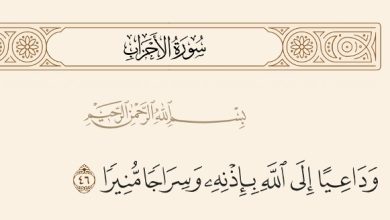 سُورَةُ الأَحْزَابِ
بِسْمِ اللَّهِ الرَّحْمَٰنِ الرَّحِيمِ
وَدَاعِيًا إِلَى ٱللَّهِ بِإِذْنِهِۦ وَسِرَاجًا مُّنِيرًا ٤٦